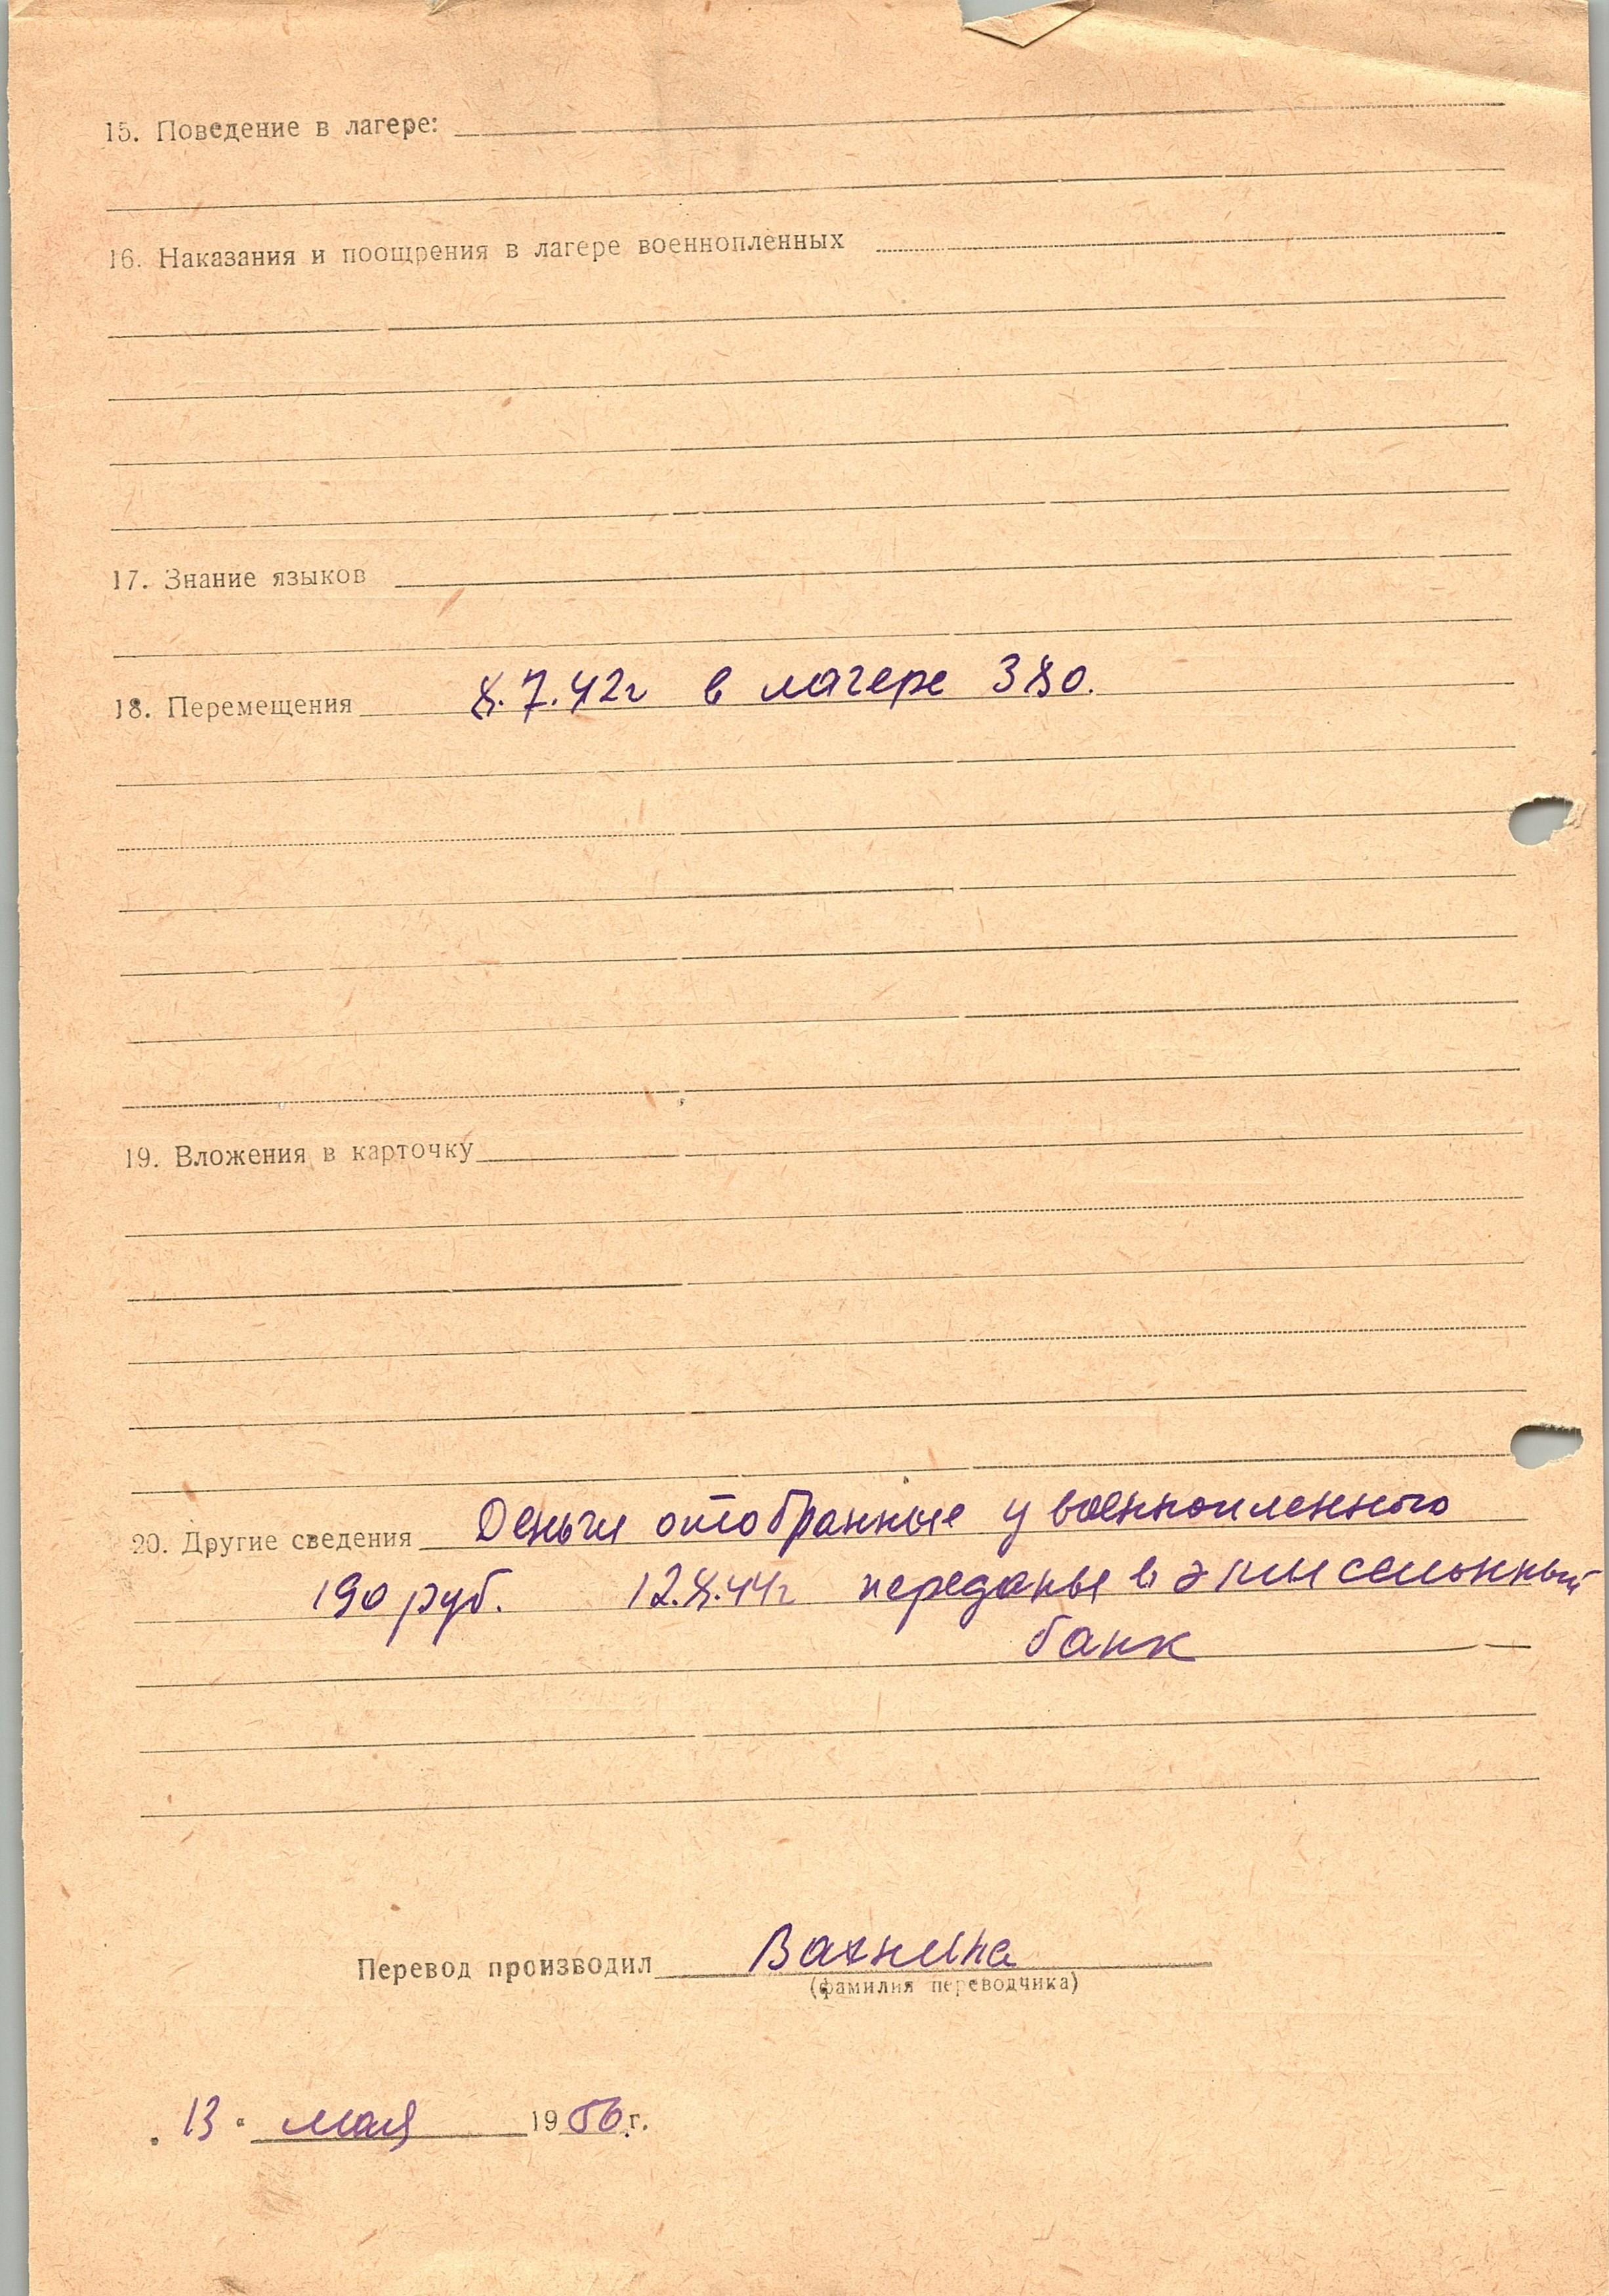 15. Поведение в лагере:
16. Наказания и поощрения в лагере военнопленных
17. Знание языков
18. Перемещения 8.7.42г в лагере 380.
19. Вложения в карточку
20. Другие сведения Деньги отобранные у военнопленного
190 руб. 12.8.44г переданы в эмиссионный
банк
Перевод производил Вахнина
(фамилия переводчика)
13. мая 1956г.